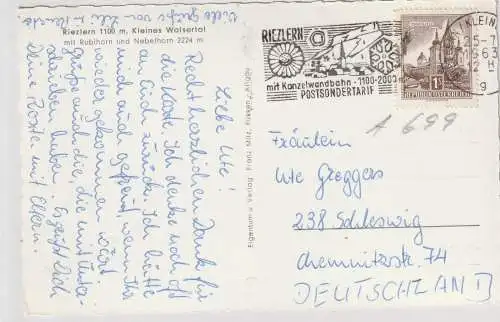 Viele Grüße von
Riezlern 1100 m, Kleines Walsertal
mit Rubihorn und Nebelhorn 2224 m
Liebe Ute!
Recht herzlichen Dank für
die Karte. Ich denke noch oft
an Euch zurück. Ich hätte
mich auch gefreut, wenn Ihr
wieder gekommen wärt.
Grüße auch die, die mit unter-
schrieben haben. Es grüßt Dich
Deine Rosi mit Eltern.
Eigentum u. Verlag Franz Milz, Füssen
RIEZLERN
mit Kanzelwandbahn · 1100-2003 m
POSTSONDERTARIF
KLEIN
REPUBLIK ÖSTERREICH
A 699
Fräulein
Ute Greggers
238 Schleswig
Chemnitzstr. 74
DEUTSCHLAND